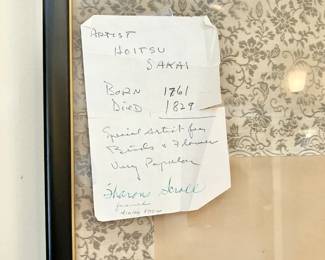 ARTIST
HOITSU
SAKAI
BORN 1761
DIED 1829
Special Artist for
Birds & Flower
Very Popular
Sharon